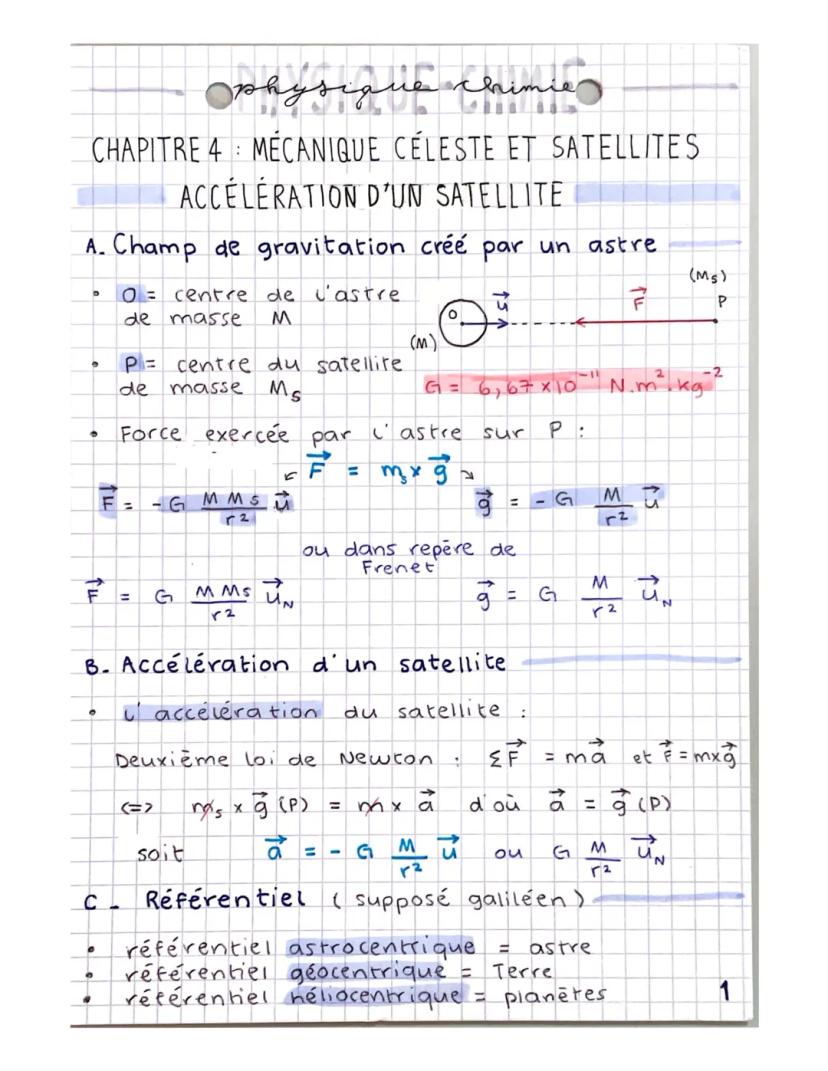 PHYSIQUE-CHIMIE
physique chimie
CHAPITRE 4 : MÉCANIQUE CÉLESTE ET SATELLITES
ACCÉLÉRATION D'UN SATELLITE
A. Champ de gravitation créé par un astre
• O = centre de l'astre
de masse M
(Ms)
O u⃗ F⃗ P
(M)
• P = centre du satellite
de masse Ms
G = 6,67 x 10⁻¹¹ N.m².kg⁻²
• Force exercée par l'astre sur P :
F⃗ = ms x g⃗
F⃗ = - G M Ms / r² u⃗ g⃗ = - G M / r² u⃗
ou dans repère de
Frenet
F⃗ = G M Ms / r² u⃗N g⃗ = G M / r² u⃗N
B. Accélération d'un satellite
• l'accélération du satellite :
Deuxième loi de Newton : ΣF⃗ = ma⃗ et F⃗ = mxg⃗
<=> ms x g⃗ (P) = m x a⃗ d'où a⃗ = g⃗ (P)
soit a⃗ = - G M / r² u⃗ ou G M / r² u⃗N
C - Référentiel (supposé galiléen)
• référentiel astrocentrique = astre
• référentiel géocentrique = Terre
• référentiel héliocentrique = planètes
1